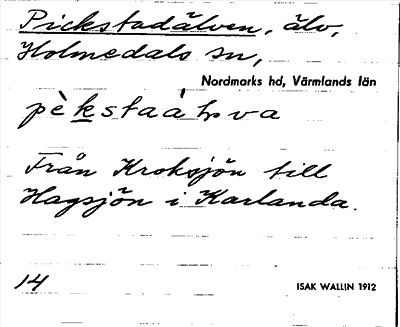 Pickstadälven, älv,
Holmedals sn,
Nordmarks hd, Värmlands län
Från Kroksjön till
Hagsjön i Karlanda.
14 ISAK WALLIN 1912